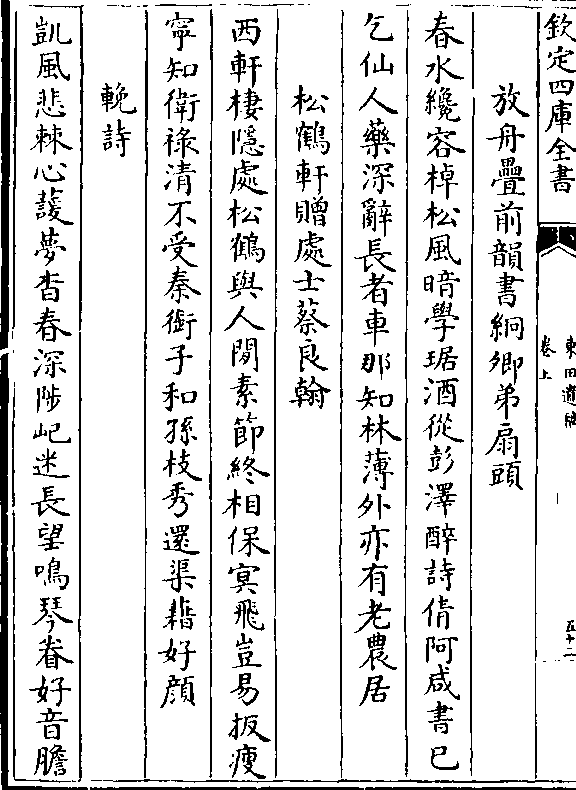 欽定四庫全書
東田遺稿
卷上
五十二
放舟疊前韻書絅卿弟扇頭
春水纔容棹松風暗學琚酒從彭澤醉詩倩阿咸書已
乞仙人藥深辭長者車那知林薄外亦有老農居
松鶴軒贈處士蔡良翰
西軒棲隱處松鶴與人閒素節終相保㝠飛豈易扳瘦
寧知衛祿清不受秦銜子和孫枝秀還渠耤好顔
輓詩
凱風悲棘心蘐夢杳春深陟屺迷長望鳴琴眷好音膽